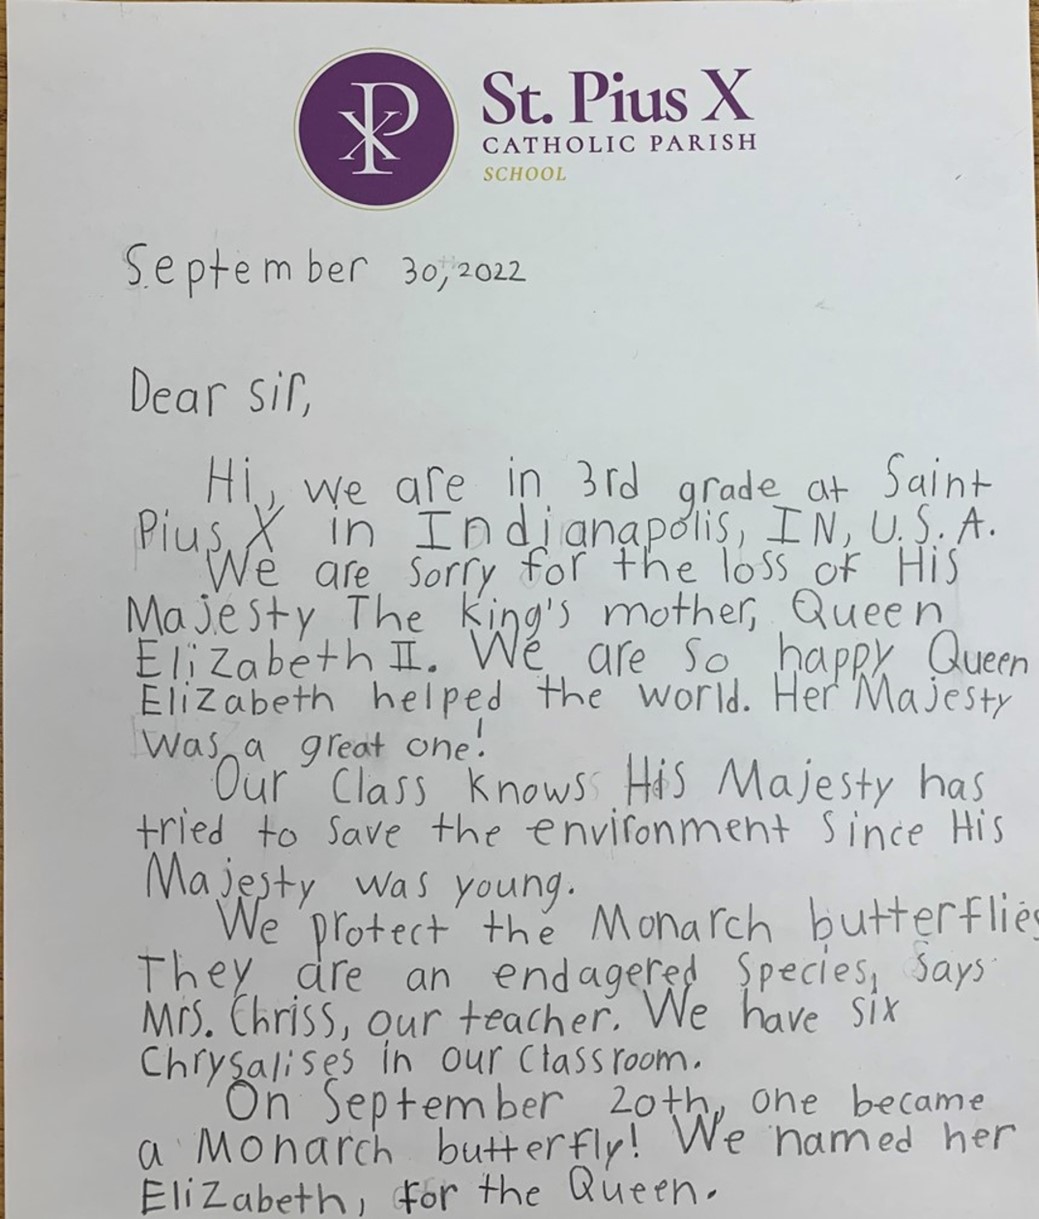 St. Pius X
CATHOLIC PARISH
SCHOOL
September 30, 2022
Dear sir,
Hi, we are in 3rd grade at Saint
Pius X in Indianapolis, IN, U.S.A.
We are sorry for the loss of His
Majesty The King's mother, Queen
Elizabeth II. We are so happy Queen
Elizabeth helped the world. Her Majesty
was a great one!
Our Class knows His Majesty has
tried to save the environment since His
Majesty was young.
We protect the Monarch butterflies
They are an endagered species, says
Mrs. Chriss, our teacher. We have six
Chrysalises in our classroom.
On September 20th, one became
a Monarch butterfly! We named her
Elizabeth, for the Queen.